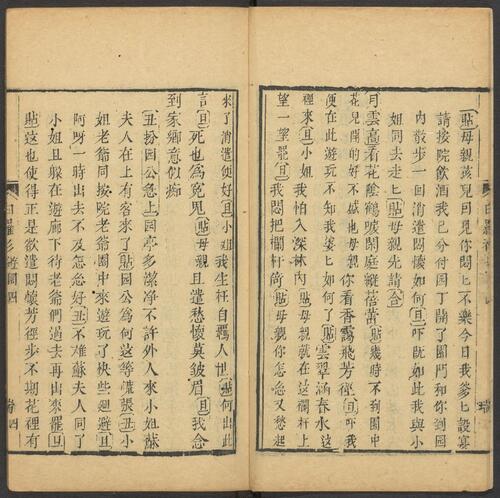 貼母親孩兒可見你悶匕不樂今日我爹匕設宴
請按院飲酒我已分付園丁鎖了園門和你到園
內散步一回消遣悶懷如何旦吓既如此我與小
姐同去走匕貼母親先請合
月雲高看花陰鶴唳閑庭縱蓓蕾貼幾時不到園中
花兒開的好不感也母親你看香靄飛芳徑旦吓我
便在此遊玩不知我婆匕如何了貼雲翠涵春水這
裡來旦小姐我怕入深林內貼母親就在這欄杆上
望一望罷旦我悶把欄杆倚貼母親你怎急又愁起
來了消遣便好旦小姐我生在自羈人世貼何出此
言旦死也為寃鬼貼母親且遣愁懷莫皺眉旦我念
到家鄉意似痴
丑扮园公急上园亭多潔凈不許外人來小姐蘇
夫人在上有客來了貼园公為何這等慌張丑小
姐老爺同按院老爺園中來遊玩了快些迴避旦
阿呀一時出去不及怎急好丑不难蘇夫人同了
小姐且躲在遊廊下待老爺們過去再出來罷旦
貼這也使得正是欲遣悶懷芳徑步不期花裡有
白羅衫遊園四
卷四